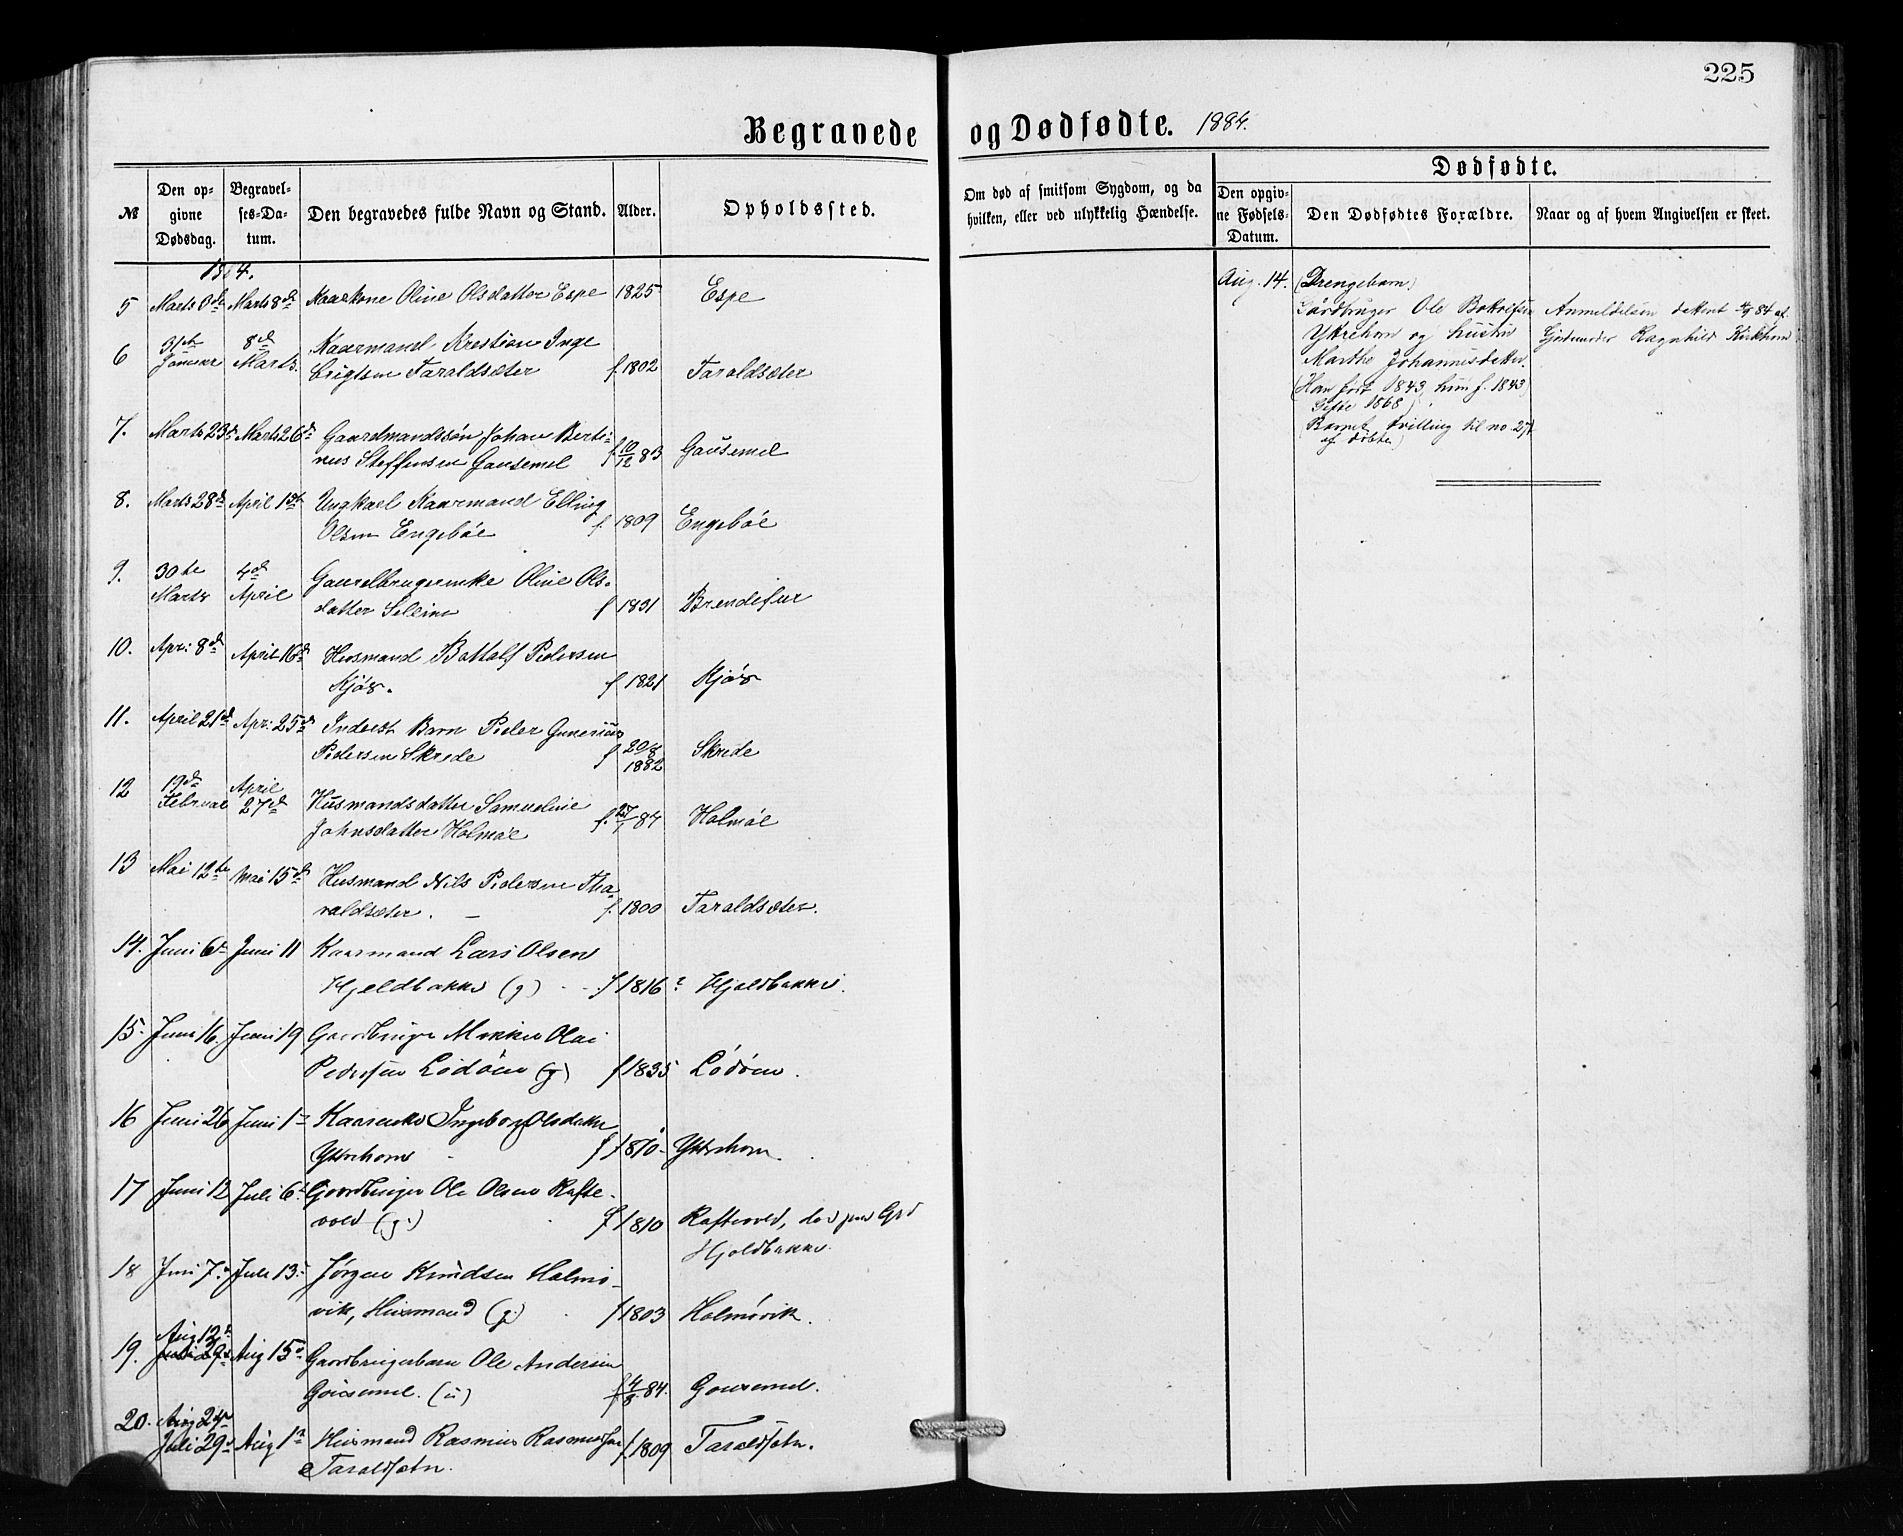 225
Begravede og Dødfødte. 1884.
№
Den opgivne Dødsdag.
Begravelses-Datum.
Den begravedes fulde Navn og Stand.
Alder.
Opholdssted.
Om død af smitsom Sygdom, og da hvilken, eller ved ulykkelig Hændelse.
Dødfødte.
Den opgivne Fødsels-Datum.
Den Dødfødtes Forældre.
Naar og af hvem Angivelsen er skeet.
1884.
5 Marts Marts 8de Kaarkone Oline Olsdatter Espe 1825 Espe
6 31te Januar 8de Marts. Kaarmand Kristian Inge
Erigtsen Taraldsæter f. 1802 Taraldsæter
7. Marts 23de Marts 26de Gaardmandssøn Johan Berti-
nus Steffensen Gausemel f 10/12 83 Gausemel
8. Marts 28de April 1ste Ungkael Kaarmand Elling
Olsen Engebøe f 1809 Engebøe
9. 30te Marts 4de April Gaardbrugerenke Oline Ols-
datter f 1831
10. Apr: 8de April 16de Husmand Bottolf Pedersen
Kjøs. f 1821 Kjøs
11. April 21de Apr: 25de Inderst Barn Peder Gunerius
Pedersen Skrede f 20/8 1882 Skrede
12 19de Februar April 27de Husmandsdatter Samueline
Johnsdatter Holmøe f. 27/1 84 Holmøe
13 Mai 12te Mai 15de Husmand Nils Pedersen Tha-
raldsæter. – f. 1800 Taraldsæter.
14. Juni 6te Juni 11 Kaarmand Lars Olsen
Hjeldbakke (g) f 1816? Hjeldbakke.
15. Juni 16. Juni 19 Gaardbruger Mikkel Olai
Pedersen Lødøen (g) f 1835 Lødøen.
16 Juni 26 Juni 1 Kaarenke Ingeborg Olsdatter
Yttrehorn f 1810 Yttrehorn.
17 Juni 12 Juli 6. Gaardbruger Ole Olsen Rafte-
vold (g.) f 1810 Raftevold, død paa Grd
Hjeldbakke.
18 Juni 7. Juli 13. Jørgen Knudsen Holmø-
vik, Husmand (g.) f 1803 Holmøvik.
Aug 12te
19. Juli 29de Aug 15de Gaardbrugerbarn Ole Andersen
Gausemel. (u) f 4/8 84. Gausemel.
20. Aug 24
Juli 29de Aug 1 Husmand Rasmus Rasmussen f. 1809 Taraldsetn.
Taraldsetn.
Aug. 14. (Drengebarn)
Gårdbruger Ole Botolfsen
Yttrehorn og hustru
Marthe Johannesdatter.
(Han født 1843, hun f. 1843
Gifte 1868)
(Barnet tvilling til no. 27
af døbte)
Anmeldelsen dateret 84 af
Gjordemoder Ragnhild Kirkhorn.